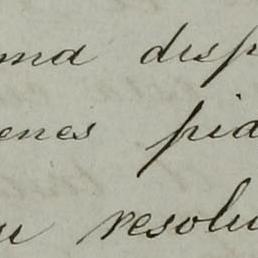 ma disp
enes pid
su resolu